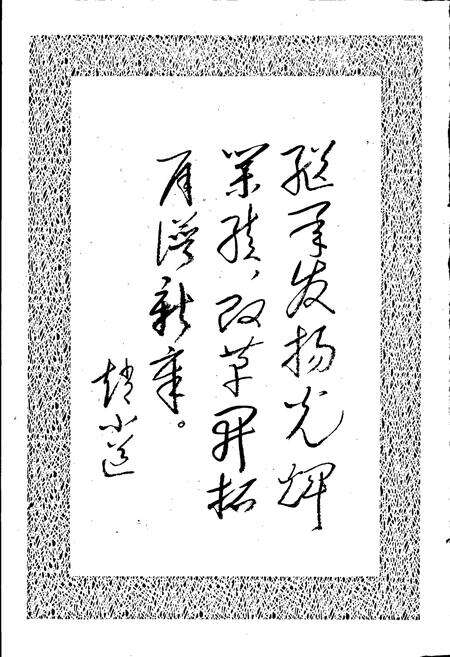 继承发扬光辉
业绩，改革开拓
再谱新章。
赵小道